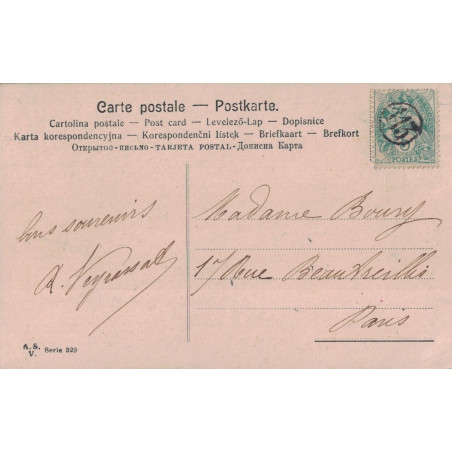 Carte postale — Postkarte.
Cartolina postale — Post card — Levelező-Lap — Dopisnice
Karta korespondencyjna — Korespondenční lístek — Briefkaart — Brefkort
Открытое-письмо - TARJETA POSTAL - Дописна Карта
POSTES
bons souvenirs
Madame Boury
17 Rue Beautreillis
Paris
A. S.
V. Serie 329